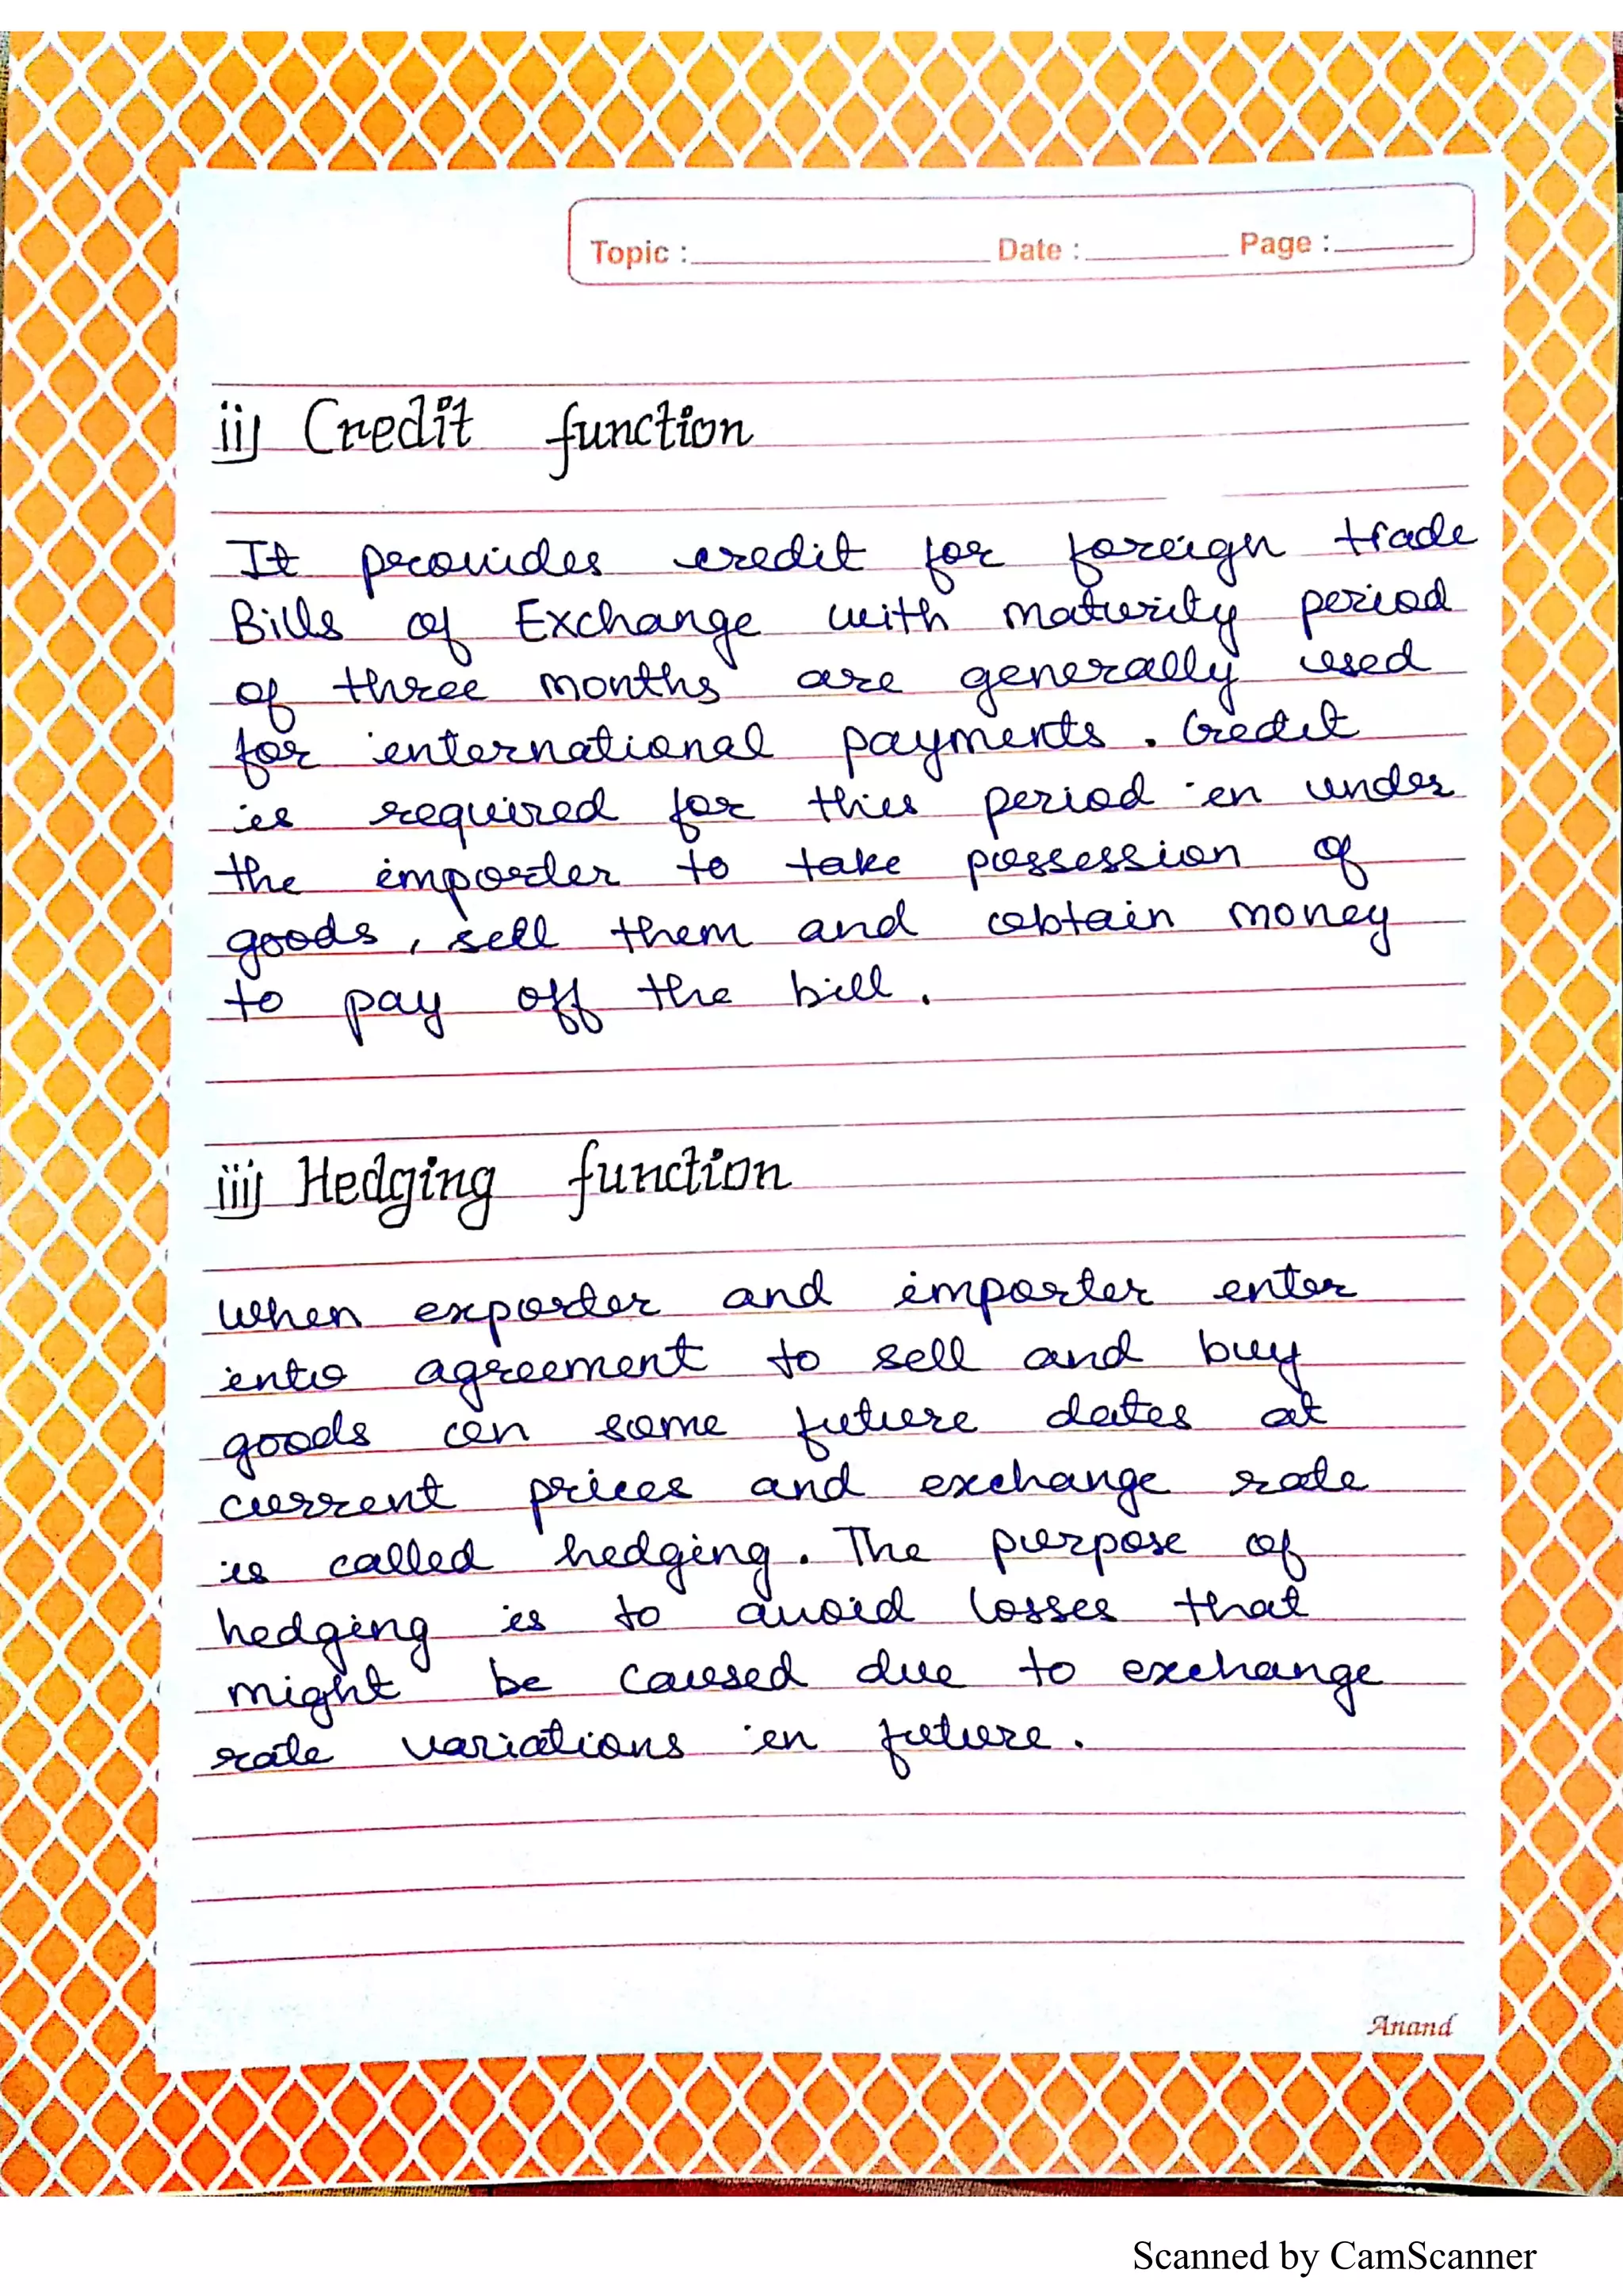 Topic : Date : Page :
ii) Credit function
It provides credit for foreign trade
Bills of Exchange with maturity period
of three months are generally used
for international payments. Credit
is required for this period in under
the importer to take possession of
goods, sell them and obtain money
to pay off the bill.
iii) Hedging function
When exporter and importer enter
into agreement to sell and buy
goods on some future dates at
current prices and exchange rate
is called hedging. The purpose of
hedging is to avoid losses that
might be caused due to exchange
rate variations in future.
Anand
Scanned by CamScanner